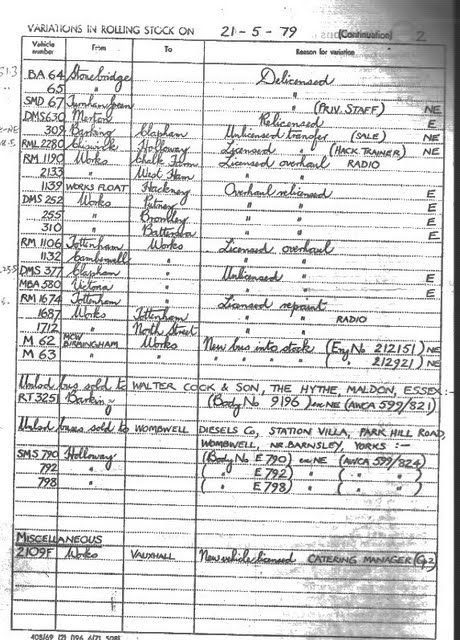 VARIATIONS IN ROLLING STOCK ON 21-5-79 (Continuation) 2
Vehicle number From To Reason for variation
BA 64 Stonebridge Delicensed
65 " "
SMD 67 Turnham Green " (PRIV. STAFF) NE
DMS 630 Merton Relicensed E
309 Barking Clapham Unlicensed transfer (SALE) NE
RML 2280 Chiswick Holloway Licensed " (HACK TRAINER) NE
RM 1190 Works Chalk Farm Licensed overhaul RADIO
2133 " West Ham " "
1139 WORKS FLOAT Hackney Overhaul relicensed E
DMS 252 Works Putney " " E
255 " Bromley " " E
310 " Battersea " " E
RM 1106 Tottenham Works Licensed overhaul
1132 Camberwell " " "
DMS 377 Clapham " Unlicensed " E
MBA 580 Victoria " " " E
RM 1674 Tottenham " Licensed repaint
1687 Works Tottenham " " RADIO
1712 " North Street " "
M 62 MCW BIRMINGHAM Works New bus into stock (Eng No 212151) NE
M 63 " " " " " " ( " 212921) NE
Unlcd bus sold to WALTER COCK & SON, THE HYTHE, MALDON, ESSEX:-
RT 3251 Barking (Body No 9196) NE (AWCA 599/821)
Unlcd buses sold to WOMBWELL DIESELS Co, STATION VILLA, PARK HILL ROAD,
WOMBWELL, NR. BARNSLEY, YORKS :-
SMS 790 Holloway (Body No E 790) NE (AWCA 599/824)
792 " ( " E 792) " ( " " )
798 " ( " E 798) " ( " " )
MISCELLANEOUS
2109F Works VAUXHALL New vehicle licensed CATERING MANAGER